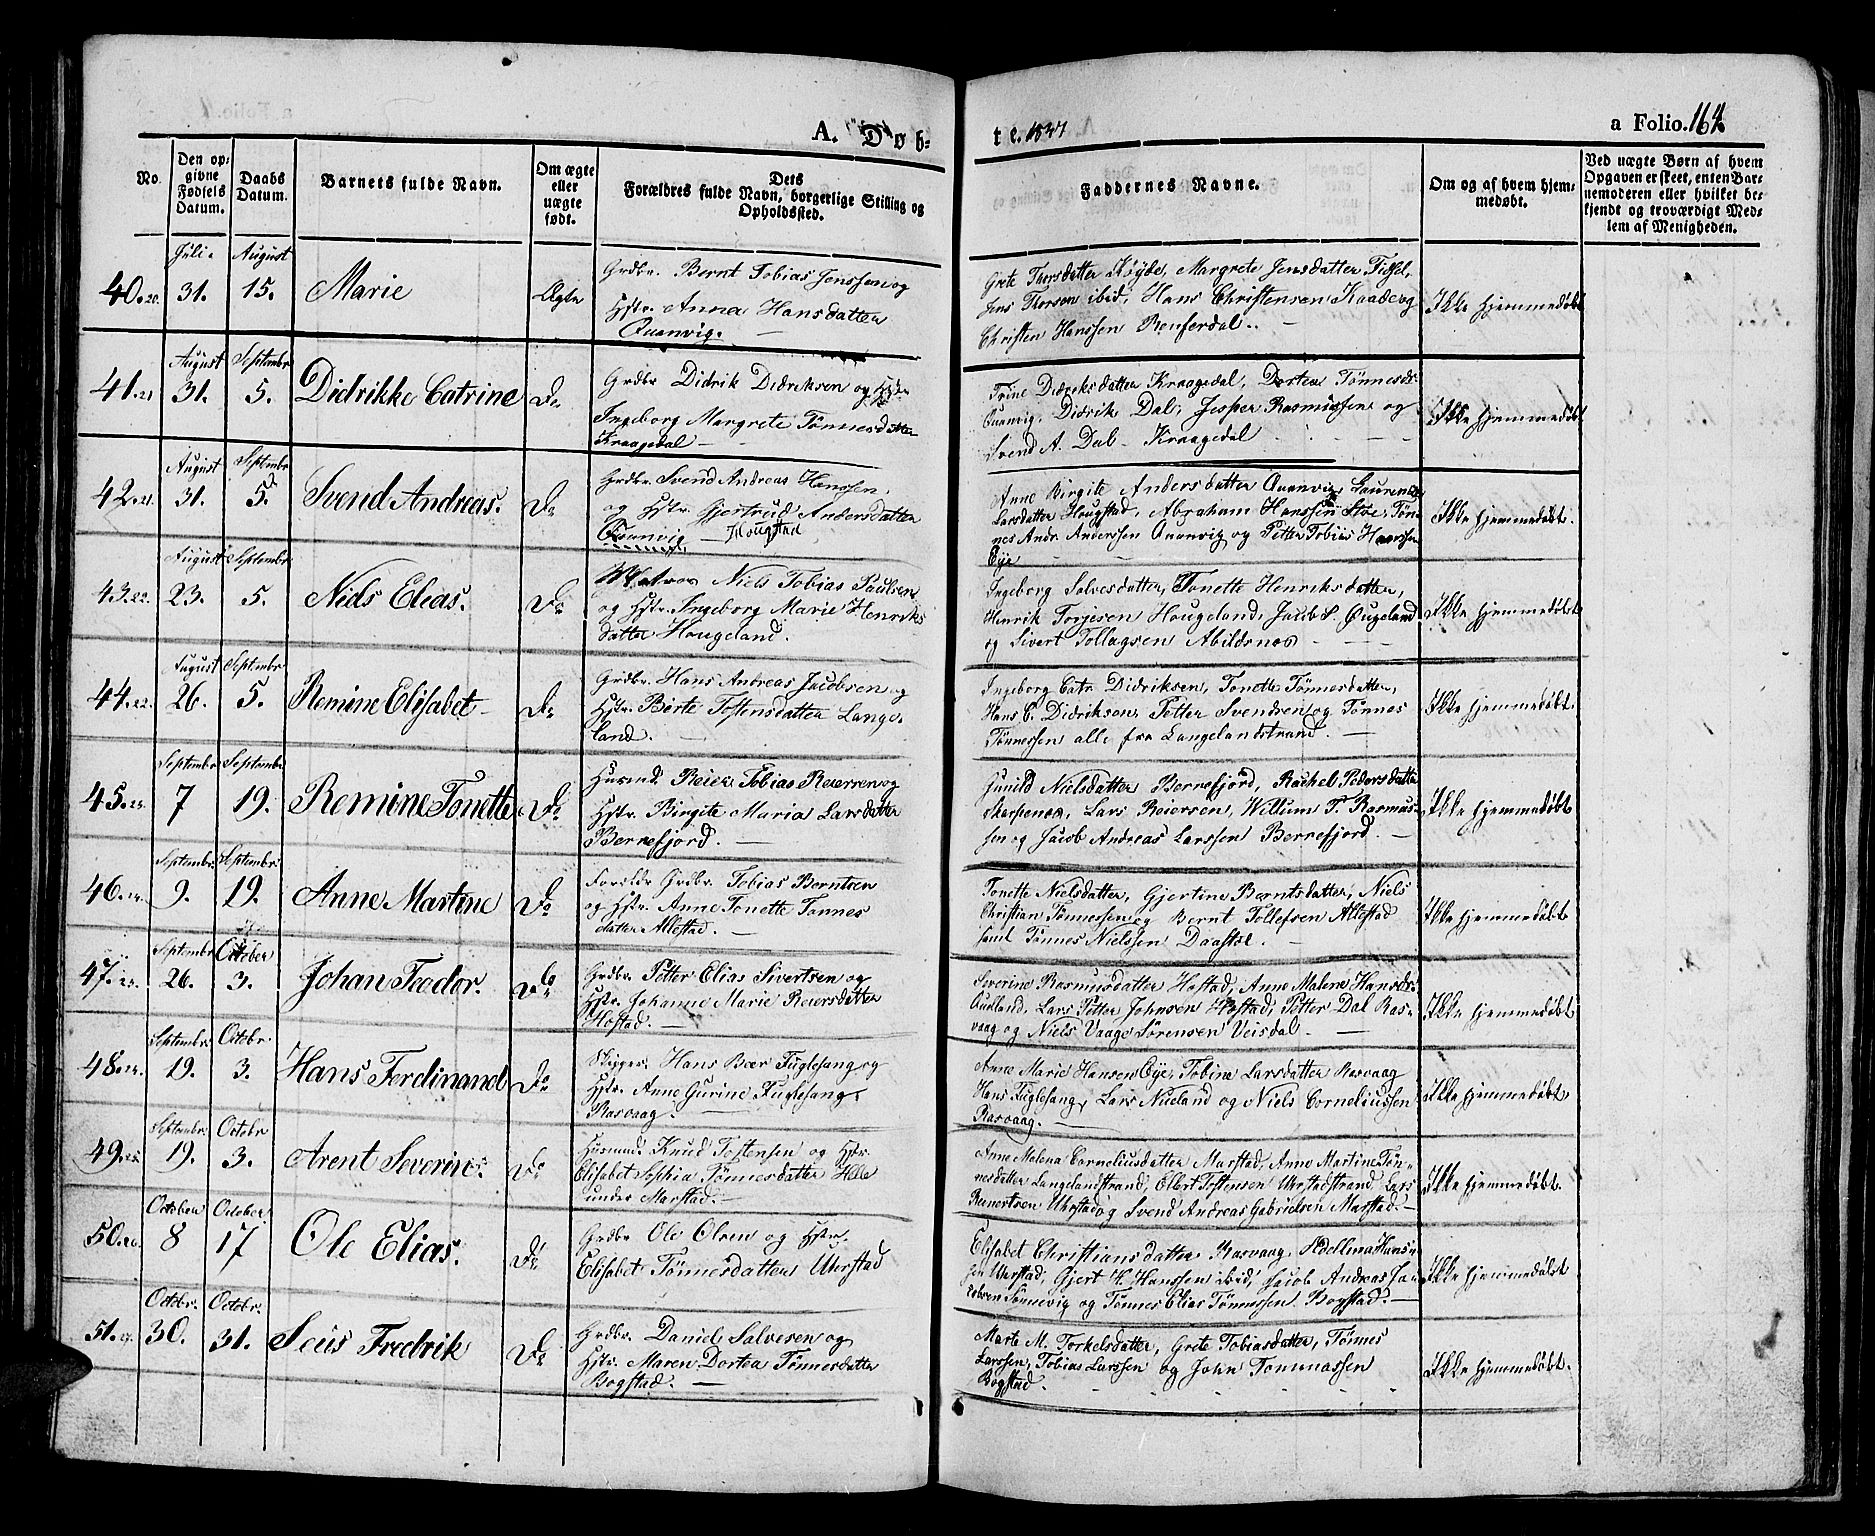 A. Døb-
te. 1847
a Folio. 164
No.
Den op-
givne
Fødsels
Datum.
Daabs
Datum.
Barnets fulde Navn.
Om ægte
eller
uægte
født.
Dets
Forældres fulde Navn, borgerlige Stilling og
Opholdssted.
Faddernes Navne.
Om og af hvem hjem-
medøbt.
Ved uægte Børn af hvem
Opgaven er skeet, enten Bar-
nemoderen eller hvilket be-
kjendt og troværdigt Med-
lem af Menigheden.
40. 20. Juli 31. August 15. Marie Ægte
Grdbr. Bernt Tobias Jenssen og
Hstr. Anna Hansdatter
Qvanvig. —
Grete Thorsdatter Køyde, Margrete Jensdatter Fidsel,
Jens Thorsen ibid, Hans Christensen Kaade og
Christen Hanssen Renferdal. —
Ikke hjemmedøbt
41. 21 August 31. Septembr 5. Didrikke Catrine Do
Grdbr Didrik Didriksen og Hstr
Ingeborg Margrete Tønnesdatter
Kraagedal —
Trine Didriksdatter Kraagedal, Dortea Tønnesdr
Qvanvig, Didrik Dal, Jesper Rasmussen og
Svend A. Dal - Kraagedal
Ikke hjemmedøbt
42. 21. August 31. Septembr 5. Svend Andreas. Do
Grdbr. Svend Andreas Hanssen,
og Hstr. Gjertrud Andersdatter
Qvanvig — Hougstad
Anne Birgite Andersdatter Qvanvig, Laurence
Larsdatter Hougstad, Abraham Hanssen Stre, Tøn-
nes Andr. Anderssen Qvanvig og Petter Tobias Hanssen
Eye
Ikke hjemmedøbt.
43. 22. August 23. Septembr 5. Niels Elias. Do
Matros Niels Tobias Paulsen
og Hstr. Ingeborg Marie Henriks
datter Hougeland.
Ingeborg Salvesdatter, Tonette Henriksdatter,
Henrik Torjesen Hougeland, Jacob S. Øugeland
og Sivert Tollagsen Abildsnes — —
Ikke hjemmedøbt
44. 22. August 26. Septembr 5. Romine Elisabet Do
Grdbr. Hans Andreas Jacobsen og
Hstr. Berte Tostensdatter Lange-
land. —
Ingeborg Catr. Didriksen, Tonette Tønnesdatter,
Hans C. Didriksen, Petter Svendsen og Tønnes
Tønnessen alle fra Langelandstrand. —
Ikke hjemmedøbt.
45. 23. Septembr 7 Septembr 19. Romine Tonette Do
Husmd. Reier Tobias Reiersen og
Hstr. Birgite Maria Larsdatter
Bernefjord. —
Gunild Nielsdatter Bernefjord, Rachel Pedersdatter
Skarpenes, Lars Reiersen, Willum T. Rasmus-
sen og Jacob Andreas Larssen Bernefjord. —
Ikke hjemmedøbt
46. 24. Septembr. 9. Septembr. 19. Anne Martine Do
Forældr Grdbr. Tobias Berntsen
og Hstr. Anne Tonette Tønnes
datter Allestad. —
Tonette Nielsdatter, Gjertine Berntsdatter, Niels
Christian Tønnessen og Bernt Tollefsen Allestad
samt Tønnes Nielssen Daastøl. —
Ikke hjemmedøbt
47. 23. Septembr 26. October 3. Johan Teodor. Do
Grdbr. Petter Elias Sivertsen og
Hstr. Johanne Marie Reiersdatter
Høstad. —
Severine Rasmusdatter Høstad, Anne Malene Hansdr.
Audland, Lars Petter Johnsen Høstad, Petter Dal Ras-
vaag og Niels Vaage Sørensen Veisdal. —
Ikke hjemmedøbt
48. 24. Septembr. 19. Octobr. 3. Hans Ferdinand Do
Skipper. Hans Boer Fuglesang og
Hstr. Anne Gurine Fuglesang.
Rasvaag. —
Anne Marie Hansen Eye, Tobine Larsdatter Rasvaag
Hans Fuglesang, Lars Nueland og Niels Corneliussen
Rasvaag. —
Ikke hjemmedøbt.
49. 25 Septembr. 19. Octobr 3. Arent Severin. Do
Husmnd. Knud Tostensen og Hstr.
Elisabet Sophia Tønnesdatter Hele
under Marstad. —
Anne Malena Corneliusdatter Marstad, Anne Martine Tøn-
nesdatter Langelandstrand, Ellert Tostensen Urstadstrand, Lars
Berentsen Urstad og Svend Andreas Gabrielsen Marstad. —
Ikke hjemmedøbt.
50. 26. October 8 October 17 Ole Elias. Do
Grdbr Ole Olsen og Hstr.
Elisabet Tønnesdatter Urstad
Elisabet Christiansdatter Rasvaag, Adellina Hans-
sen Urstad, Gjert H. Hanssen ibid, Jacob Andreas Ja-
cobsen Sønnevig og Tønnes Elias Tønnessen Bogstad. —
Ikke hjemmedøbt
51. 27. Octobr. 30. Octobr. 31. Seus Fredrik Do
Grdbr. Daniel Salvesen og
Hstr. Maren Dortea Tønnesdatter
Bogstad. —
Marte M. Torkelsdatter, Grete Tobiasdatter, Tønnes
Larssen, Tobias Larssen og John Tommassen
Bogstad.
Ikke hjemmedøbt.